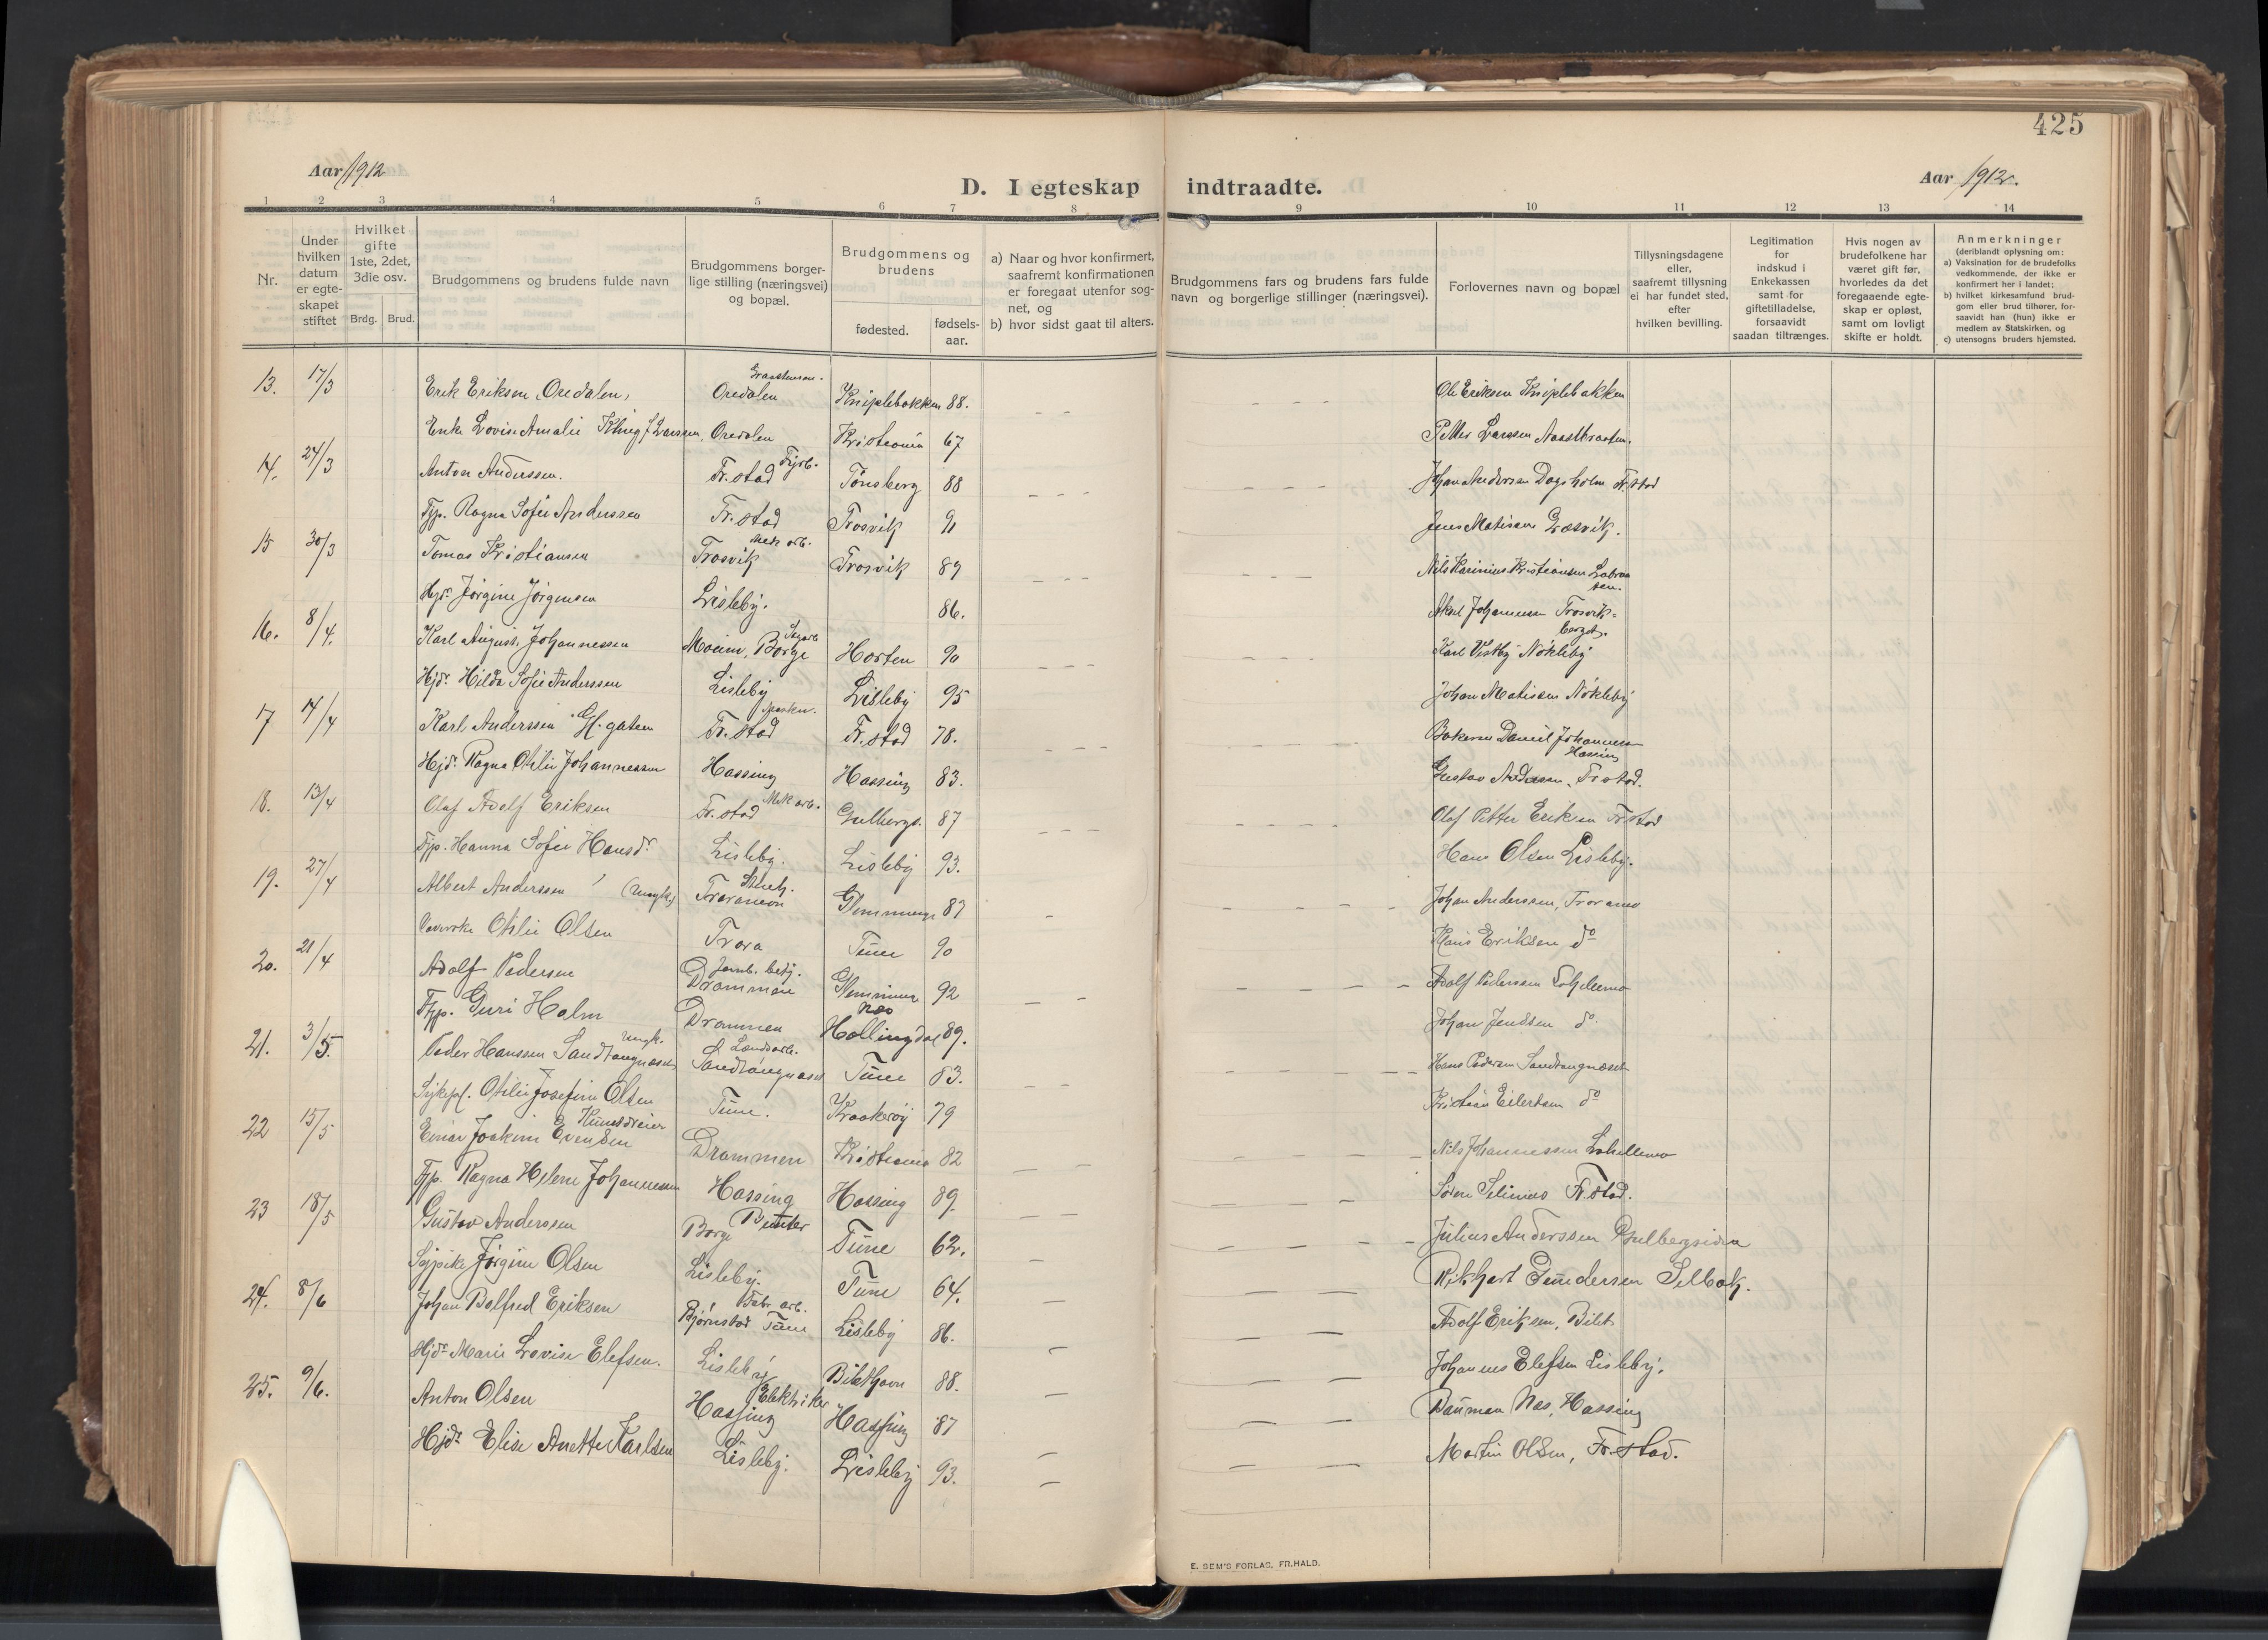 425
Aar 1912
D. I egteskap indtraadte.
Aar 1912.
1 2 3 4 5 6 7 8 9 10 11 12 13 14
Nr.
Under hvilken datum er egteskapet stiftet
Hvilket gifte 1ste, 2det, 3die osv.
Brdg. Brud.
Brudgommens og brudens fulde navn
Brudgommens borgerlige stilling (næringsvei) og bopæl.
Brudgommens og brudens
fødested.
fødselsaar.
a) Naar og hvor konfirmert, saafremt konfirmationen er foregaat utenfor sognet, og
b) hvor sidst gaat til alters.
Brudgommens fars og brudens fars fulde navn og borgerlige stillinger (næringsvei).
Forlovernes navn og bopæl
Tillysningsdagene eller, saafremt tillysning ei har fundet sted, efter hvilken bevilling.
Legitimation for indskud i Enkekassen samt for giftetilladelse, forsaavidt saadan tiltrænges.
Hvis nogen av brudefolkene har været gift før, hvorledes da det foregaaende egteskap er opløst, samt om lovligt skifte er holdt.
Anmerkninger
(deriblandt oplysning om:
a) Vaksination for de brudefolks vedkommende, der ikke er konfirmert her i landet;
b) hvilket kirkesamfund brudgom eller brud tilhører, forsaavidt han (hun) ikke er medlem av Statskirken, og
c) utensogns bruders hjemsted.
13. 17/3 Erik Eriksen, Oredalen, Oredalen Kniplebakken 88. Ole Eriksen Kniplebakken
Enke Lovise Amalie f. Larssen, Oredalen Kristiania 67 Petter Larssen
14. 24/3 Anton Anderssen. Fr.stad Fyrb. Tønsberg 88 Johan Andersen Dagsholm Fr.stad
Fp. Ragna Sofie Anderssen Fr.stad Trosvik 91 Jens Matisen Græsvik.
15 30/3 Tomas Kristiansen Mek arb. Trosvik Trosvik 89 Nils Karinius Kristiansen
Hjd. Jørgine Jørgensen Lisleby. 86. Johannessen Trosvikberget.
16. 8/4. Karl August Johannessen Moum, Borge Horten 90 Karl Vestby Nøkleby
Hjd. Hilda Sofie Anderssen Lisleby Lisleby 95 Johan Matisen Nøkleby
17 14/4 Karl Anderssen Gl. gaten Fr.stad Fr.stad 78. Bakeren Daniel Johannessen Hassing
Hjd. Ragna Otilie Johannessen Hassing Hassing 83. Gustav Andersen, Fr.stad.
18. 13/4 Olaf Adolf Eriksen Fr.stad Mek arb. 87 Olaf Petter Eriksen Fr.stad
Fp. Hanna Sofie Hansd. Lisleby. Lisleby 93. Hans Olsen Lisleby.
19. 27/4 Albert Anderssen (ungk.) Glemminge 87 Johan Anderssen,
Otilie Olsen Trara Tune 90 Hans Eriksen do
20. 21/4 Adolf Pedersen Jernb. betj. Drammen Glemminge 92 Adolf Pedersen
Fp. Guri Holm Drammen Hallingdal 89. Johan Jendsen do.
21. 3/5. Peder Hanssen Sandtangnæset ungk. Landarb. Sandtangnæset Tune 83. Hans Pedersen Sandtangnæset
Otilie Josefine Olsen Tune. Kraakerøy 79 Kristian Eilertsen do
22 15/5 Einar Joakim Evensen Kunstdreier Drammen Kristiania 82 Nils Johannessen
Fp. Ragna Helene Johannessen Hassing Hassing 89. Søren Selinius Fr.stad.
23 18/5 Gustav Anderssen Borge Tune 62. Julius Anderssen
Sypike Jørgine Olsen Lisleby. Tune 64. Rikhart Gundersen Selbak.
24. 8/6 Johan Bolfred Eriksen Fabr. arb. Bjørnstad Tune Lisleby 86. Adolf Eriksen, Bilet
Hjd. Marie Lovise Elefsen. Lisleby 88. Johannes Elefsen Lisleby.
25. 9/6. Anton Olsen Elektriker Hassing Hassing 87 Næs, Hassing
Hjd. Elise Anette Karlsen Lisleby. Lisleby 93. Martin Olsen, Fr.stad.
E. SEM'S FORLAG. FR.HALD.